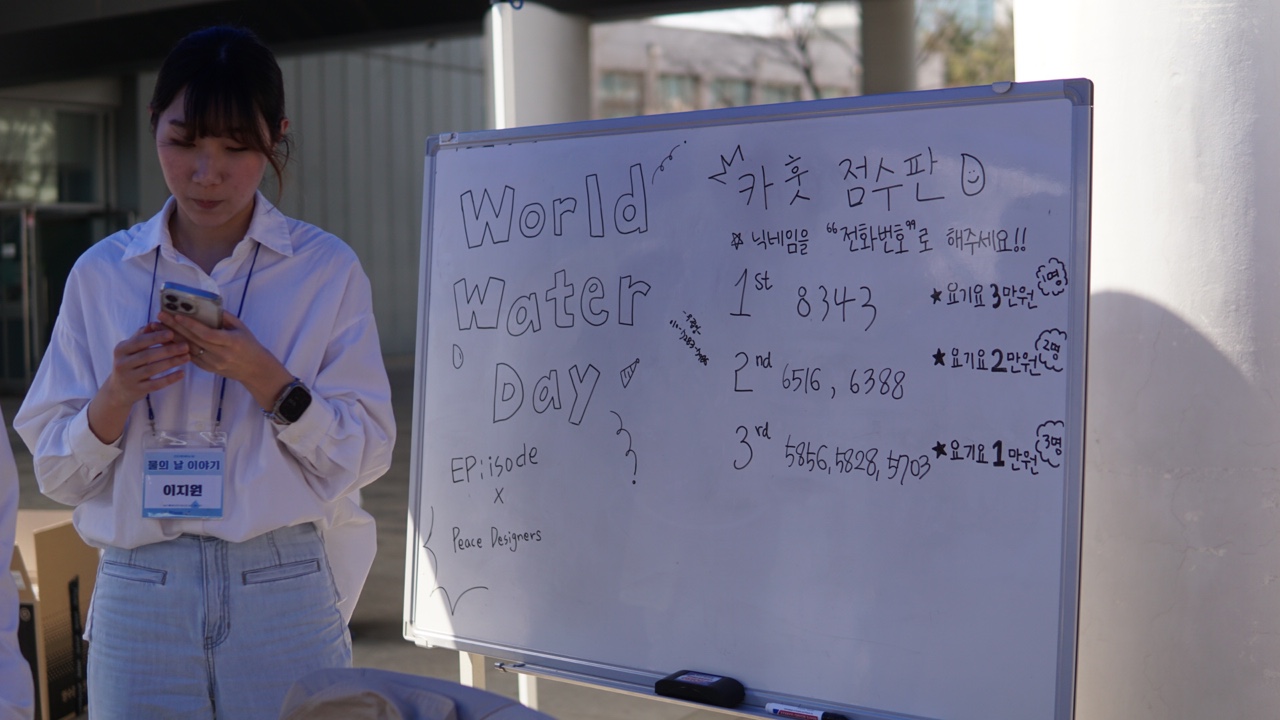 World
Water
Day
EP:isode
x
Peace Designers
카훗 점수판
☆ 닉네임을 “전화번호”로 해주세요!!
1st 8343 ★요기요 3만원 1명
2nd 6516, 6388 ★요기요 2만원 2명
3rd 5856, 5828, 5703 ★요기요 1만원 3명
물의 날 이야기
이지원